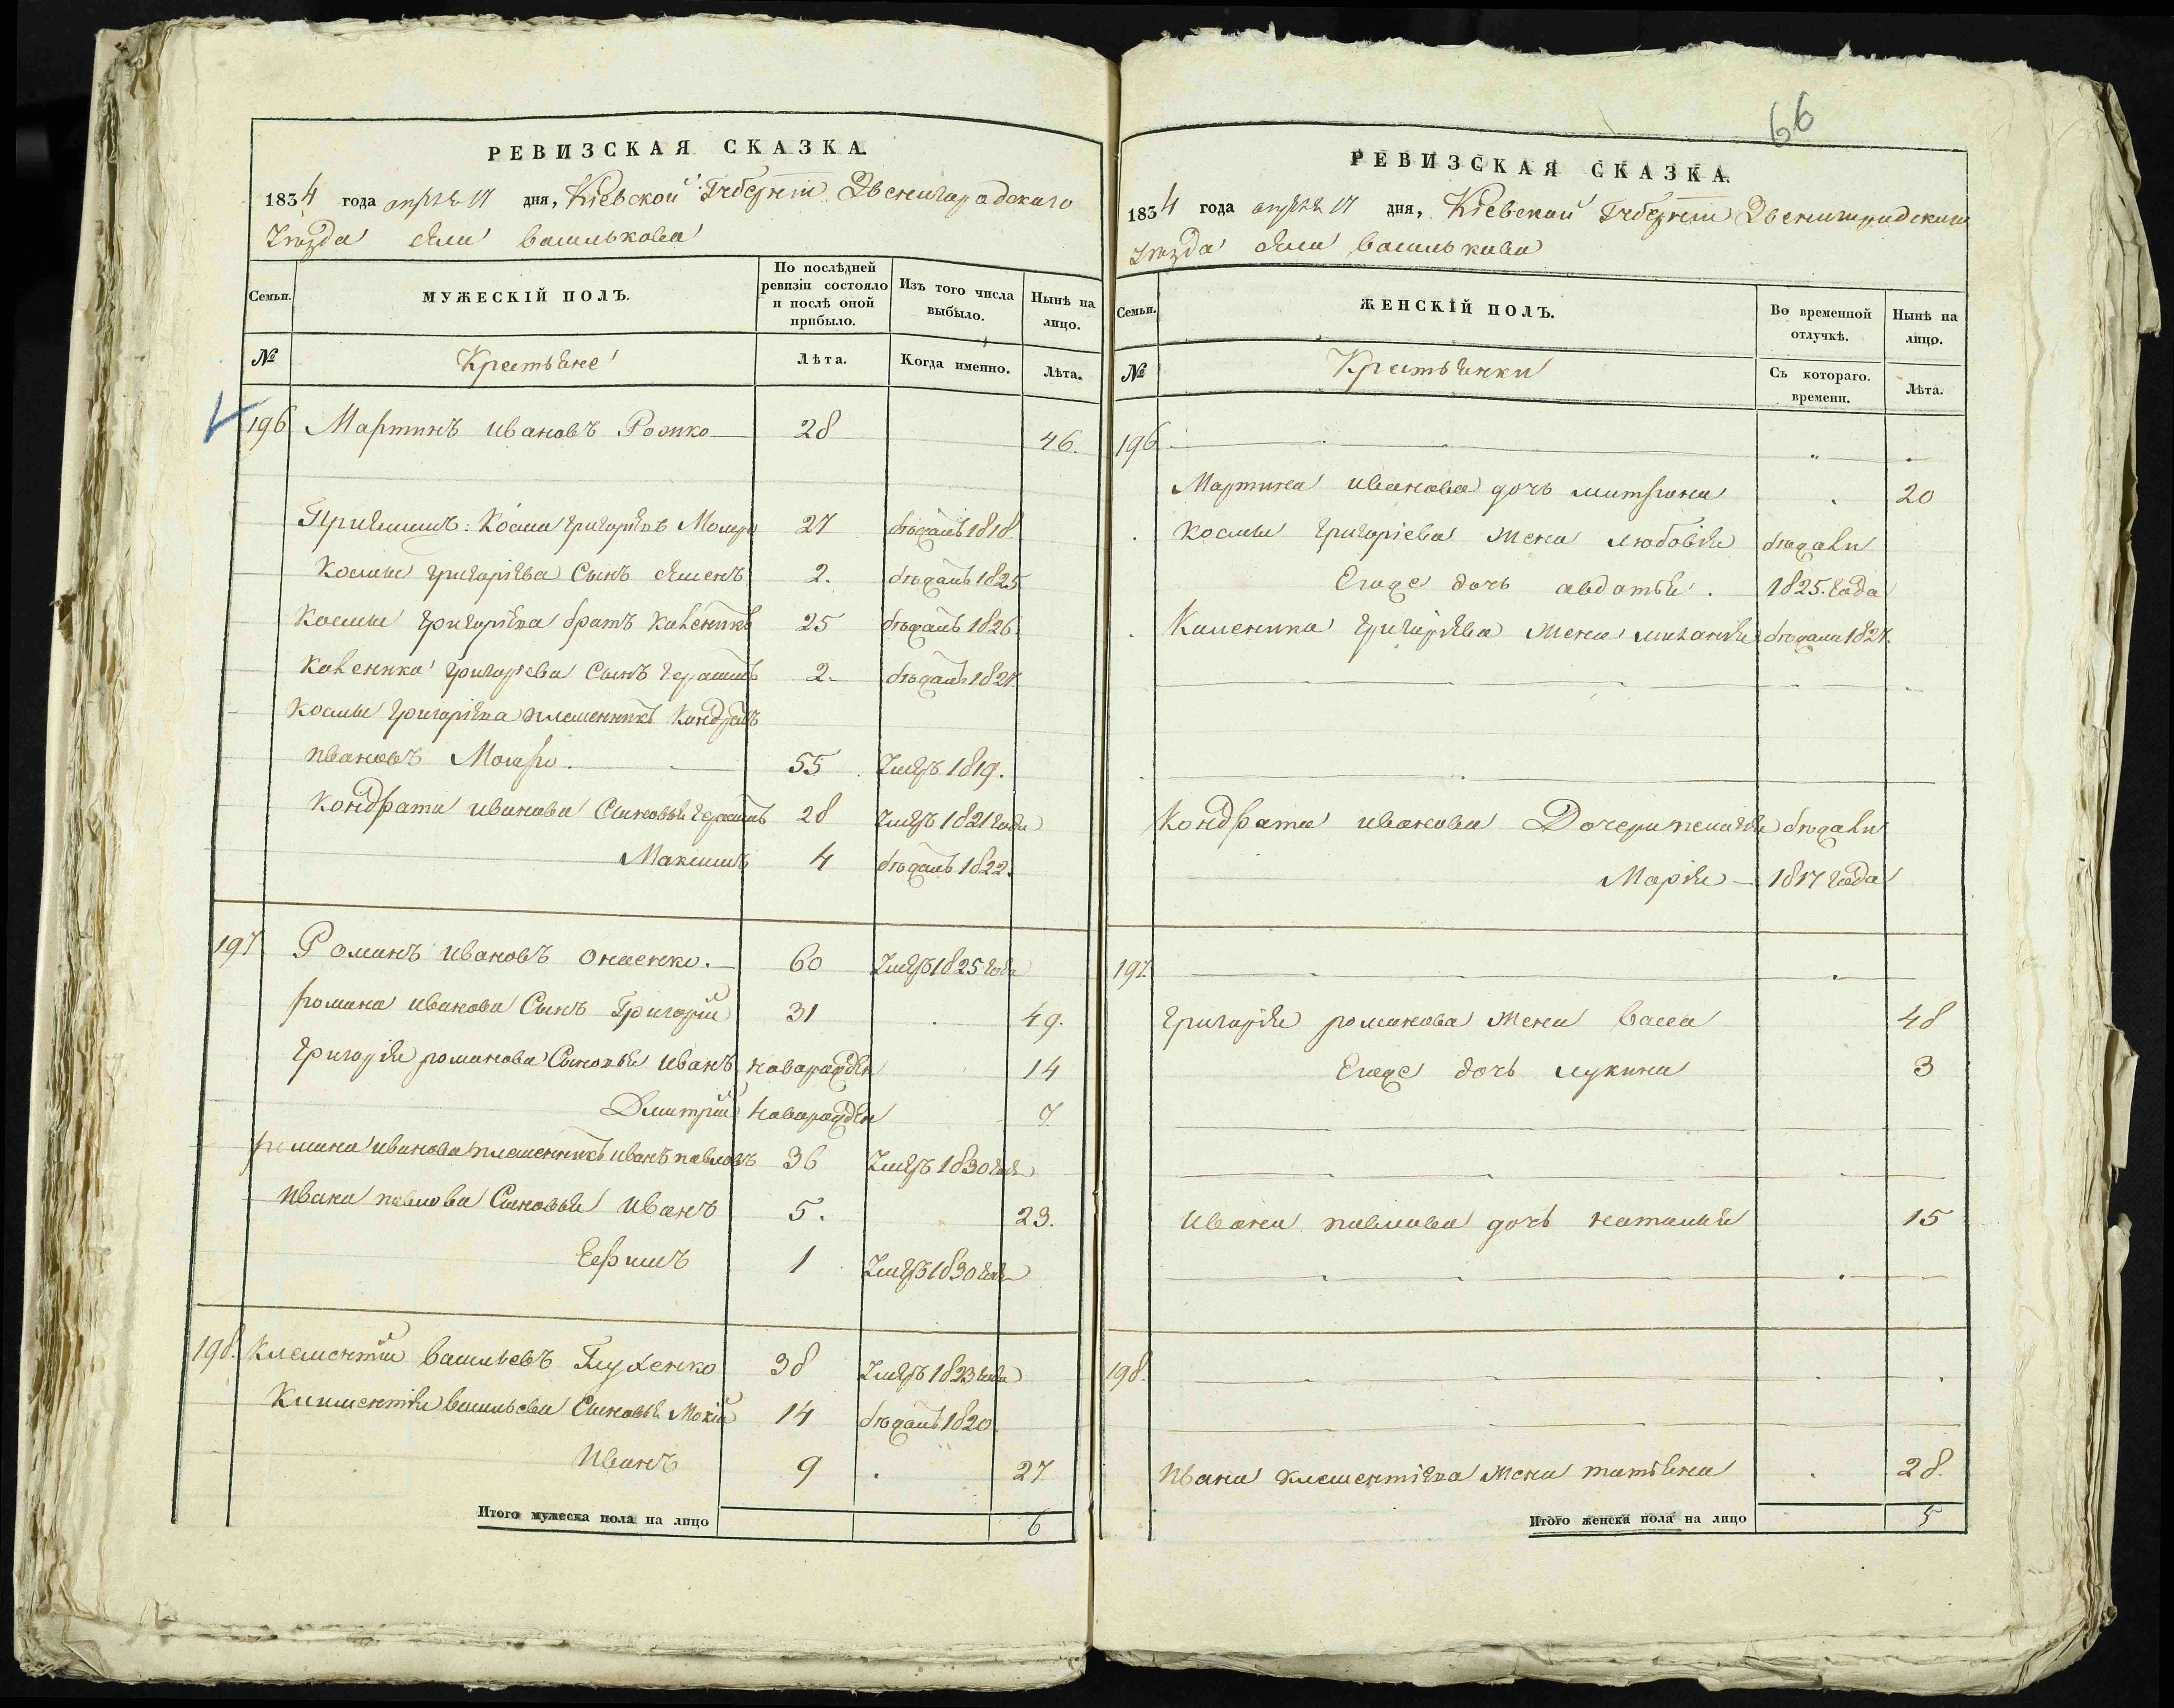 РЕВИЗСКАЯ СКАЗКА.
1834 года апрѣля 17 дня, Кіевской Губерніи Звенигородскаго
уѣзда села Василькова
Семьи. МУЖЕСКІЙ ПОЛЪ. По послѣдней ревизіи состояло и послѣ оной прибыло. Изъ того числа выбыло. Нынѣ на лицо.
№ Крестьяне Лѣта. Когда именно. Лѣта.
196 Мартинъ Ивановъ 28 46.
Косма Григоріевъ 27 бѣжалъ 1818
Космы Григоріева Сынъ Семенъ 2. бѣжалъ 1825
Космы Григоріева братъ 25 бѣжалъ 1826
Григорьева Сынъ Герасимъ 2. бѣжалъ 1827.
Космы Григоріева племенникъ Кондратъ
Ивановъ 55 умеръ 1819.
Кондрата Иванова Сыновья Герасимъ 28 умеръ 1821 года
Максимъ 4 бѣжалъ 1822.
197 Романъ Ивановъ Онаенко. 60 умеръ 1825 года
Романа Иванова Сынъ Григорій 31 49.
Григорія Романова Сыновья Иванъ новорожден 14
Дмитрій новорожден 7
Романа Иванова племенникъ Иванъ Павловъ 36 умеръ 1830 года
Ивана Павлова Сыновья Иванъ 5. 23.
Ефимъ 1 умеръ 1830 года
198. Клементій Васильевъ Глущенко 38 умеръ 1823 года
Климентія Васильева Сыновья Мокій 14 бѣжалъ 1820
Иванъ 9 27.
Итого мужеска пола на лицо 6
66
РЕВИЗСКАЯ СКАЗКА.
1834 года апрѣля 17 дня, Кіевской Губерніи Звенигородскаго
уѣзда села Василькова
Семьи. ЖЕНСКІЙ ПОЛЪ. Во временной отлучкѣ. Нынѣ на лицо.
№ Крестьянки Съ котораго. времени. Лѣта.
196
Мартина Иванова дочь Митрона 20
Космы Григоріева жена Любовія бѣжали
Егоже дочь Авдотья. 1825. года
Григоріева жена Миланія бѣжали 1827.
Кондрата Иванова Дочери Пелагея бѣжали
Марія 1817 года
197
Григорія Романова жена Васса 48
Егоже дочь Лукина 3
Ивана Павлова дочь Наталія 15
198.
Ивана Клементіева жена Татіяна 28.
Итого женска пола на лицо 5